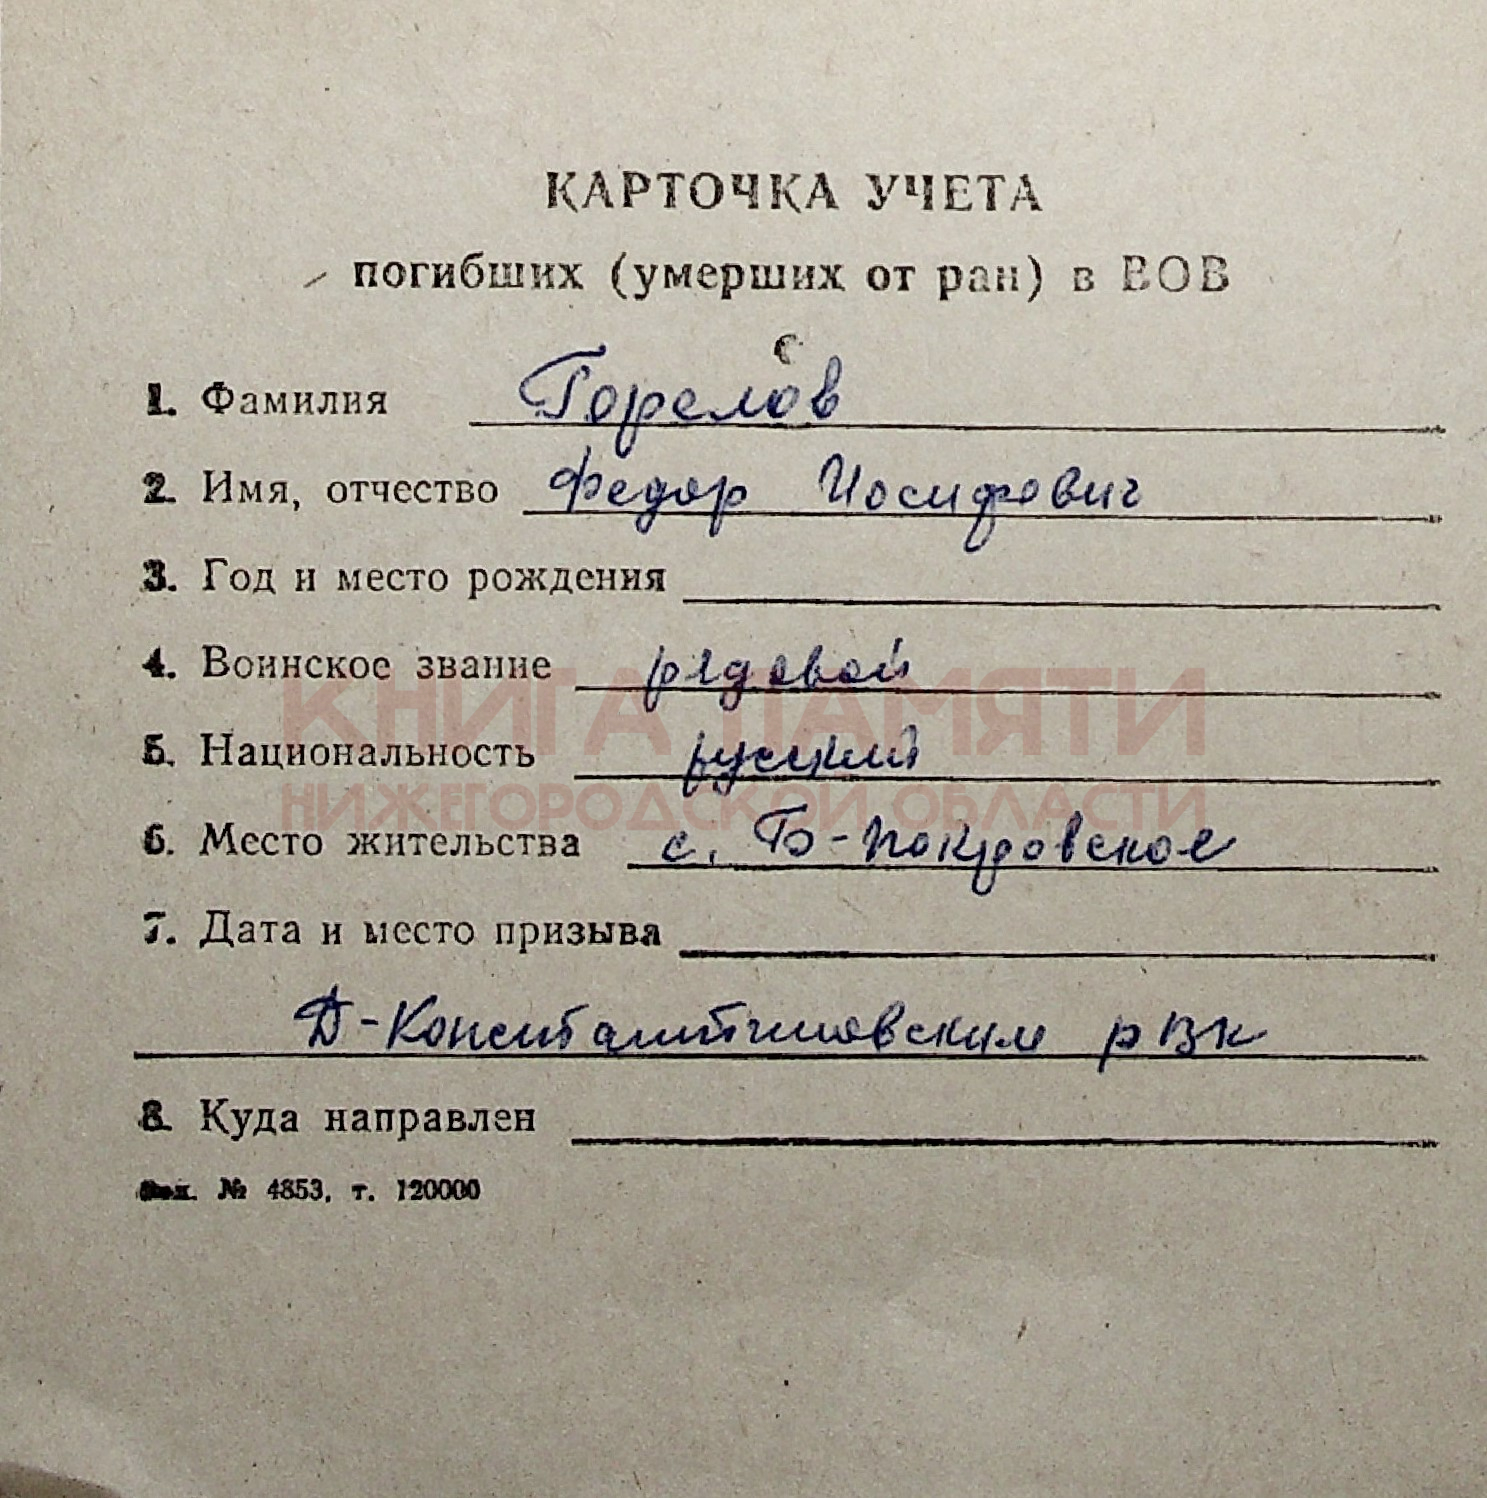 КАРТОЧКА УЧЕТА
погибших (умерших от ран) в ВОВ
с
1. Фамилия Горелов
2. Имя, отчество Федор Иосифович
3. Год и место рождения
4. Воинское звание рядовой
КНИГА ПАМЯТИ
5. Национальность русский
НИЖЕГОРОДСКОЙ ОБЛАСТИ
6. Место жительства с. Б-Покровское
7. Дата и место призыва
Д-Константиновским РВК
8. Куда направлен
№ 4853, т. 120000